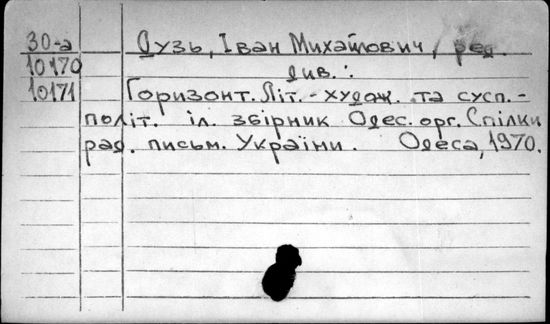 30-а Дузь, Іван Михайлович, ред.
10170 див.:
10171 Горизонт. Літ.-худож. та сусп.-
політ. іл. збірник Одес. орг. Спілки
рад. письм. України. Одеса, 1970.